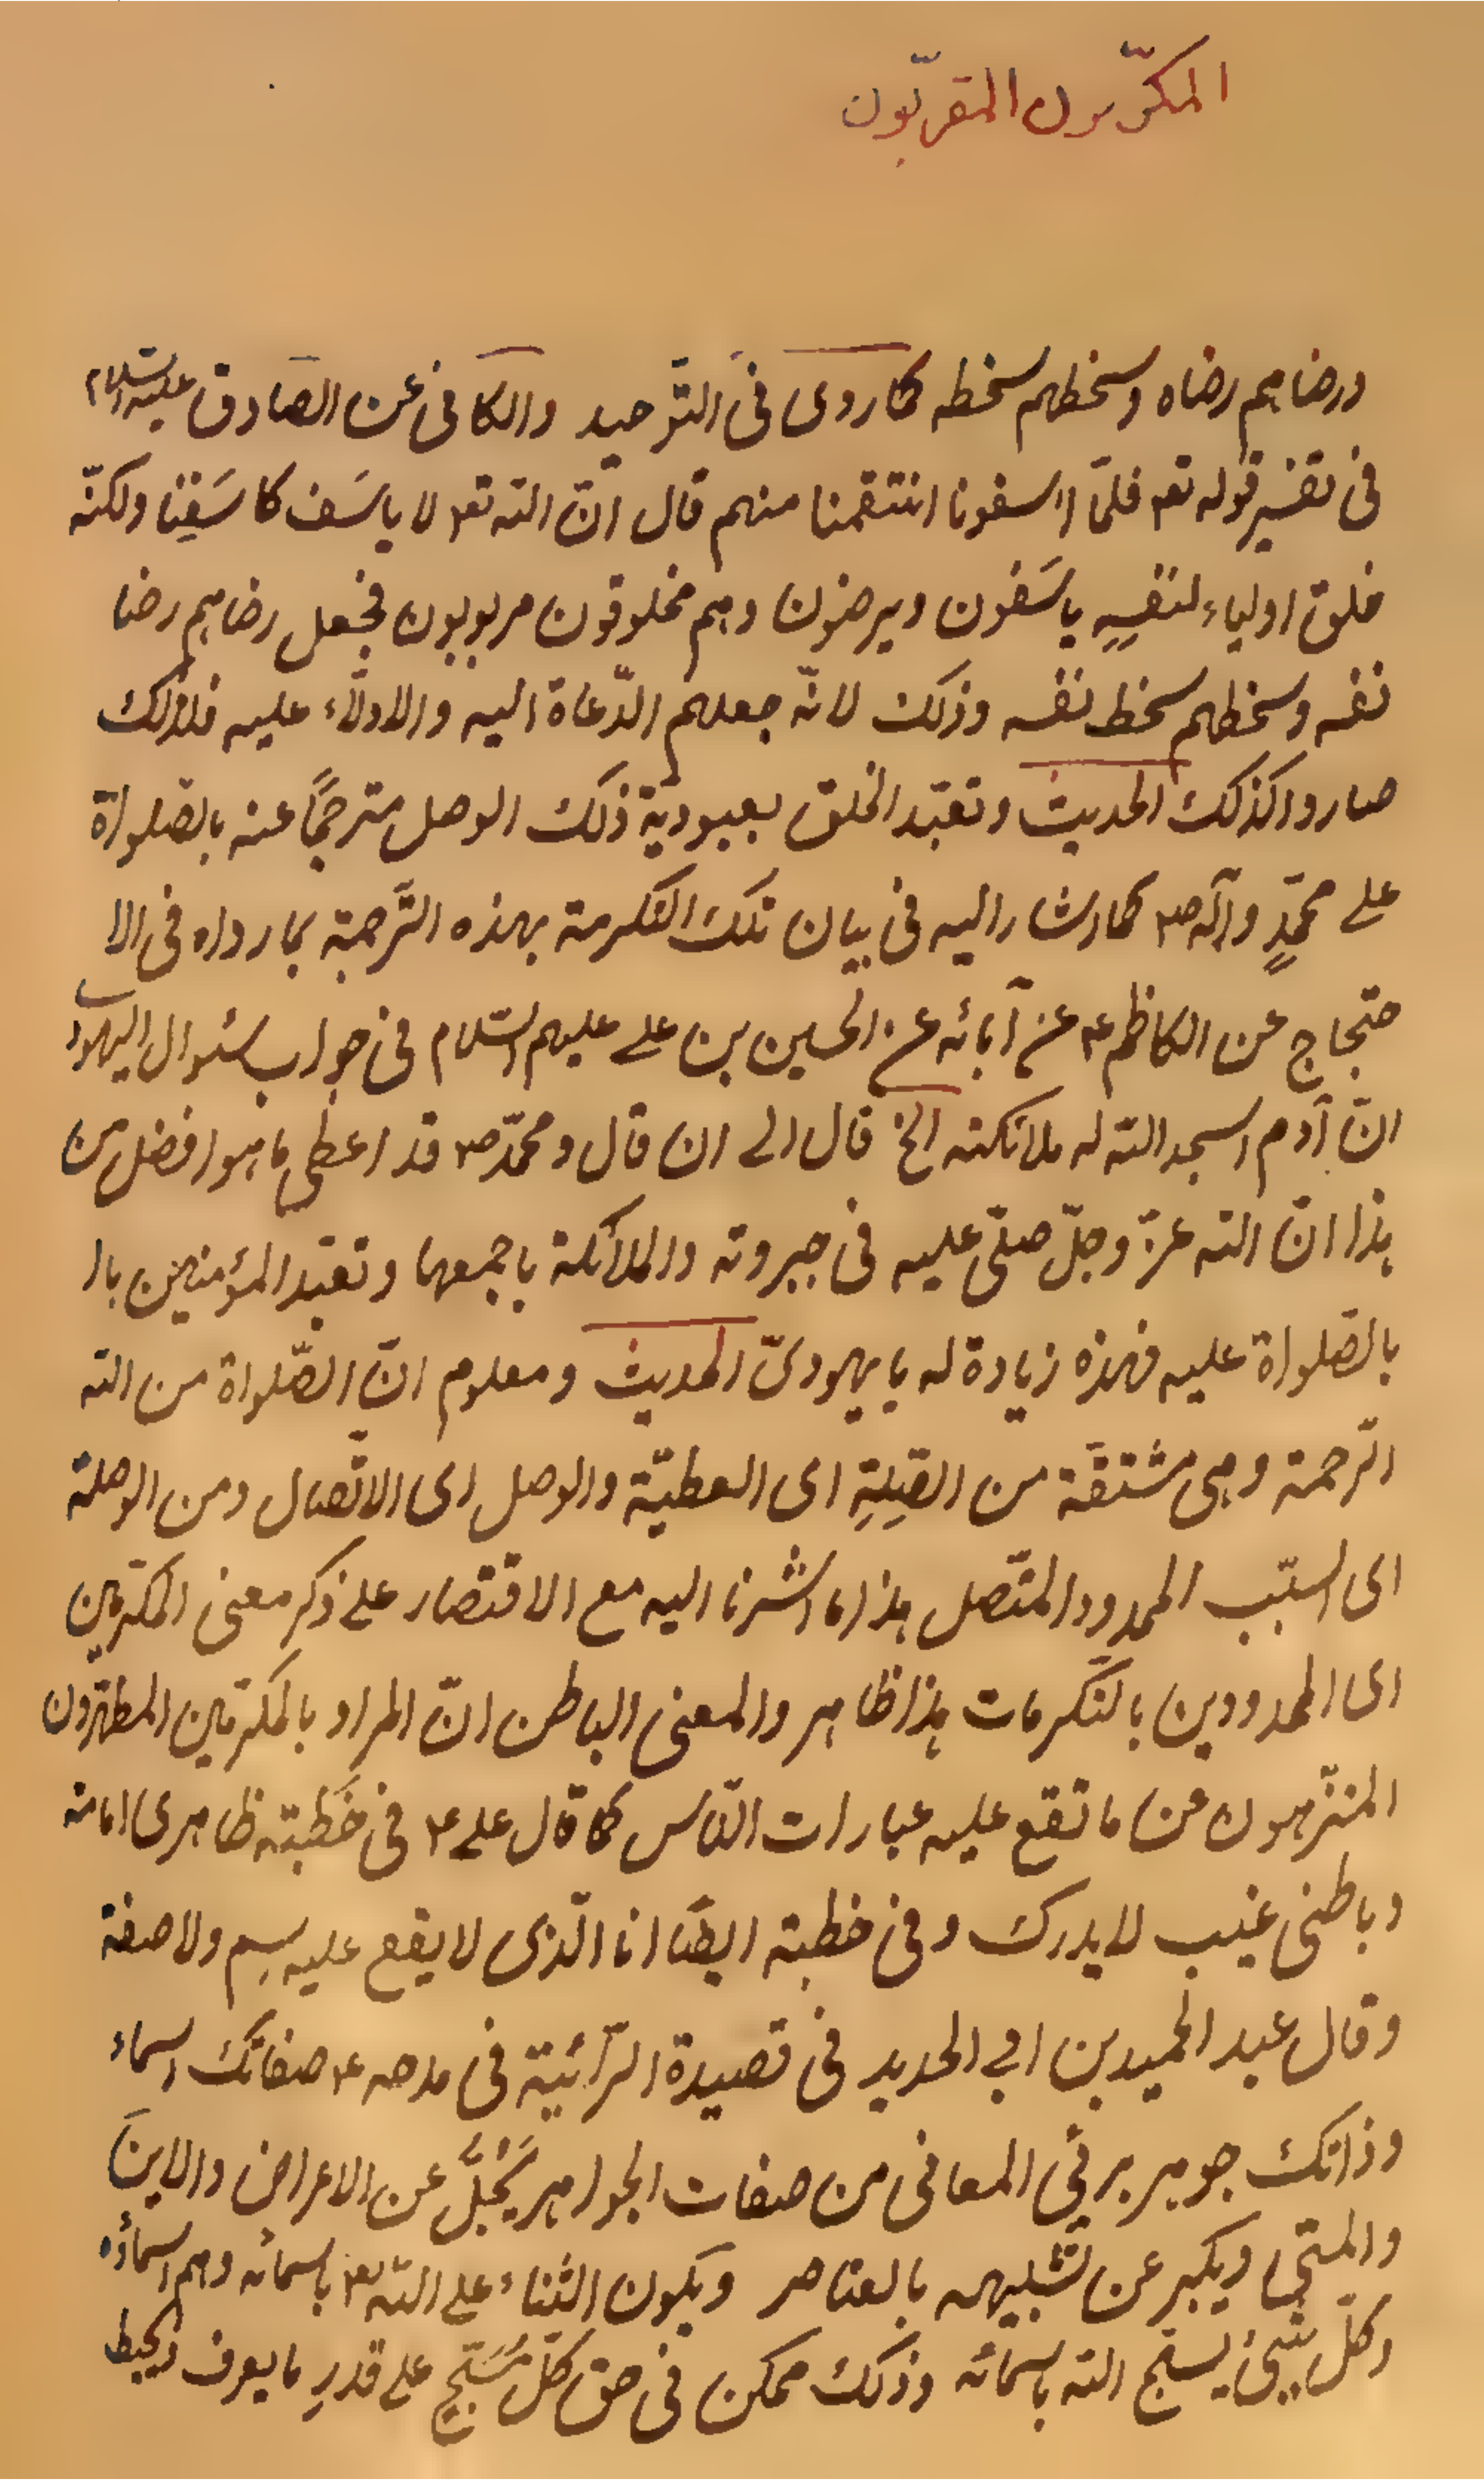 المكرّمون المقرّبون
ورضاهم رضاه وسخطهم سخطه كما روى فى التّوحيد والكافى عن الصّادق عليه السّلام
فى تفسير قوله تع فلمّا اسفونا انتقمنا منهم قال انّ اللّه تع لا ياسَف كاسَفِنا ولكنّه
خلق اولياء لنفسِهِ ياسَفون ويرضون وهم مخلوقون مربوبون فجعل رضاهم رضا
نفسه وسخطهم سخط نفسه وذلك لانّه جعلهم الدّعاة اليه والادلّاء عليه فلذلك
صاروا كذلك الحديث وتعبّد الخلق بعبوديّة ذلك الوصل مترجمًا عنه بالصّلواة
على محمّدٍ وآله ص كما اشار اليه فى بيان تلك التكرمة بهذه التّرجمة بما رواه فى الا
حتجاج عن الكاظم ع عن آبائه عن الحسين بن على عليهم السّلام فى جواب سئوال اليهود
انّ آدم اسجد اللّه له ملائكته الخ قال الى ان قال ومحمّد ص قد اعطى ما هو افضل من
هذا انّ اللّه عزّ وجلّ صلّى عليه فى جبروته والملائكة باجمعها وتعبّد المؤمنين با
بالصّلواة عليه فهذه زيادة له يا يهودىّ الحديث ومعلوم انّ الصّلواة من اللّه
الرّحمة وهى مشتقّة من الصِلِةِ اى العطيّة والوصل اى الاتّصال ومن الوصلة
اى السبّب الممدود المتّصل هذا ما اشرنا اليه مع الاقتصار على ذكر معنى المكرّمين
اى الممدودين بالتّكرمات هذا ظاهر والمعنى الباطن انّ المراد بالمكرّمين المطهّرون
المنزّهون عن ما تقع عليه عبارات النّاس كما قال على ع فى خطبته ظاهرى امامة
وباطنى غيب لا يدرك وفى خطبته ايضًا انا الّذى لا يقع عليه اسم ولا صفة
وقال عبد الحميد بن ابى الحديد فى قصيدة الرّائيّة فى مدحه ع صفاتك اسماء
وذاتك جوهر برئ المعانى من صفات الجواهر يَجُلُّ عن الاعراض والاينَ
والمتى ويكبر عن تشبيهه بالعناصر ويكون الثناء على اللّه تع باسمائه وهم اسماؤه
وكلّ شيئ يسبّح اللّه باسمائه وذلك ممكن فى حق كلّ مُسَبّحٍ على قدرِ ما يعرف ويحيط